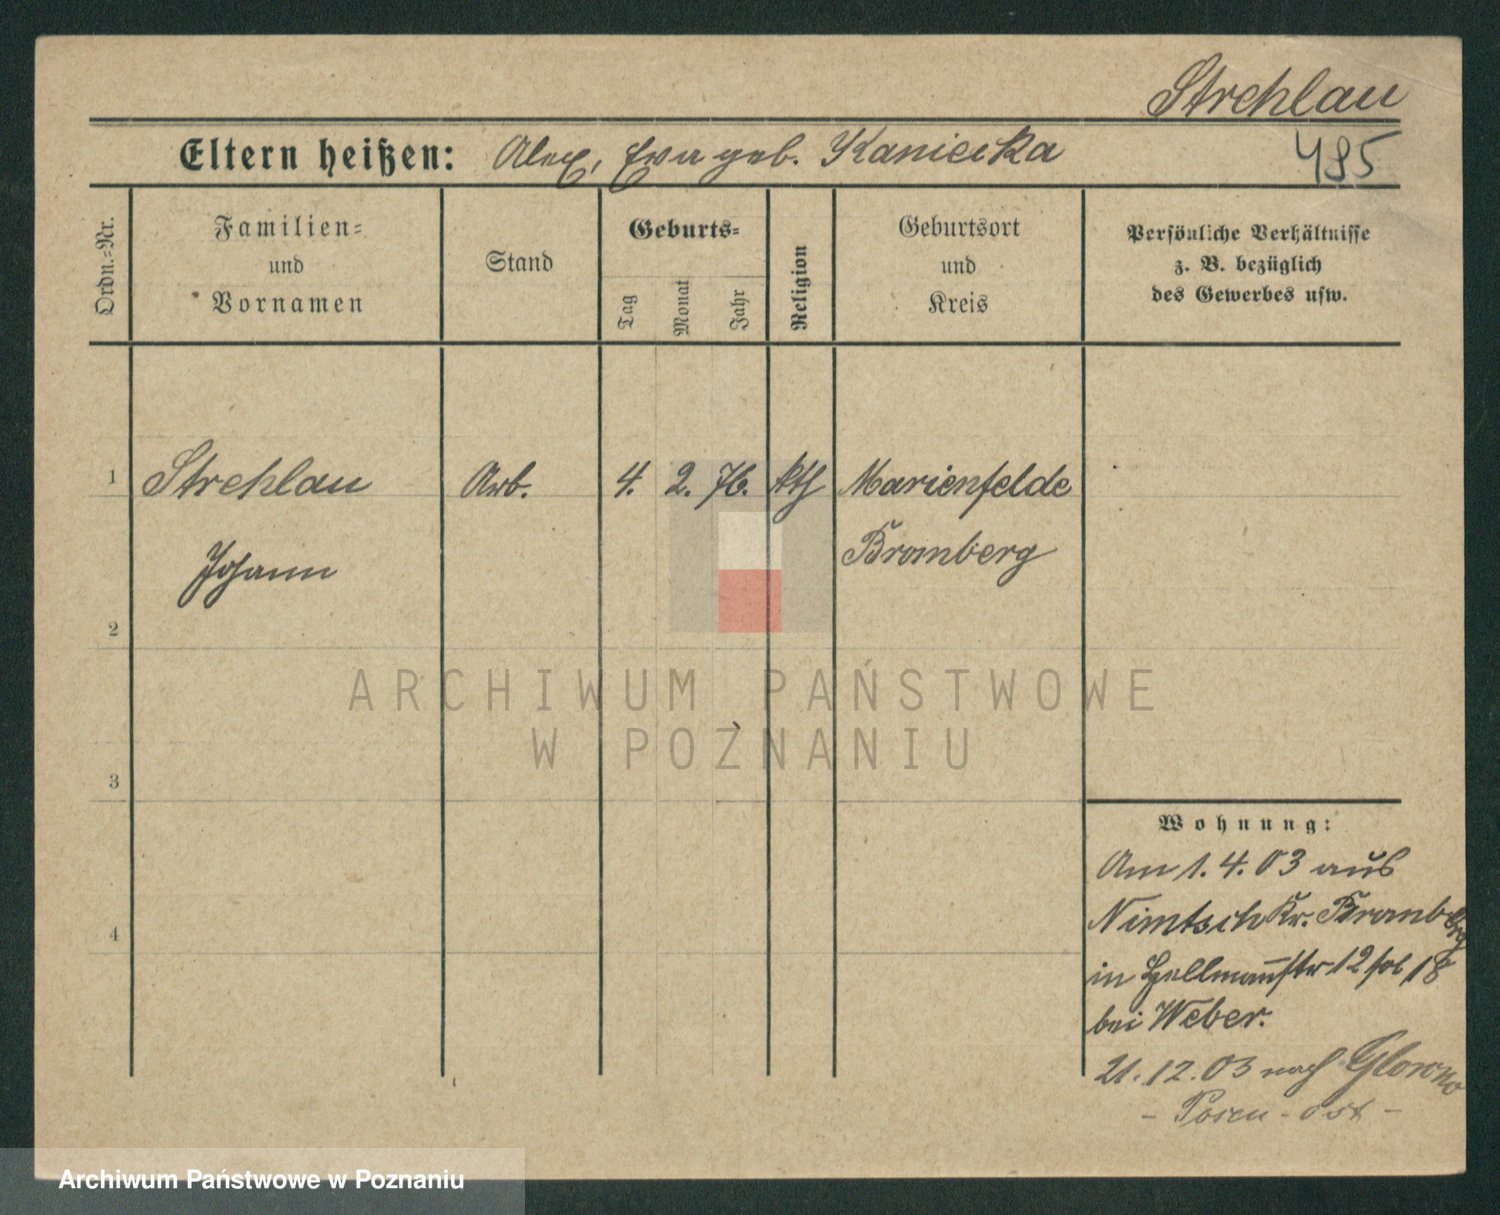 Strehlau
Eltern heißen: Alex, Eva geb. Kaniecka
495
Ordn.=Nr.
Familien=
und
Vornamen
Stand
Geburts=
Tag
Monat
Jahr
Religion
Geburtsort
und
Kreis
Persönliche Verhältnisse
z. B. bezüglich
des Gewerbes usw.
1 Strehlau Arb. 4. 2. 76. kth Marienfelde
Johann Bromberg
2
ARCHIWUM PAŃSTWOWE
W POZNANIU
3
Wohnung:
Am 1. 4. 03 aus
Nimtsch Kr. Bromberg
4
in Hellmannstr 12 18
bei Weber.
21. 12. 03 nach Glowno
- Posen - Ost -
Archiwum Państwowe w Poznaniu